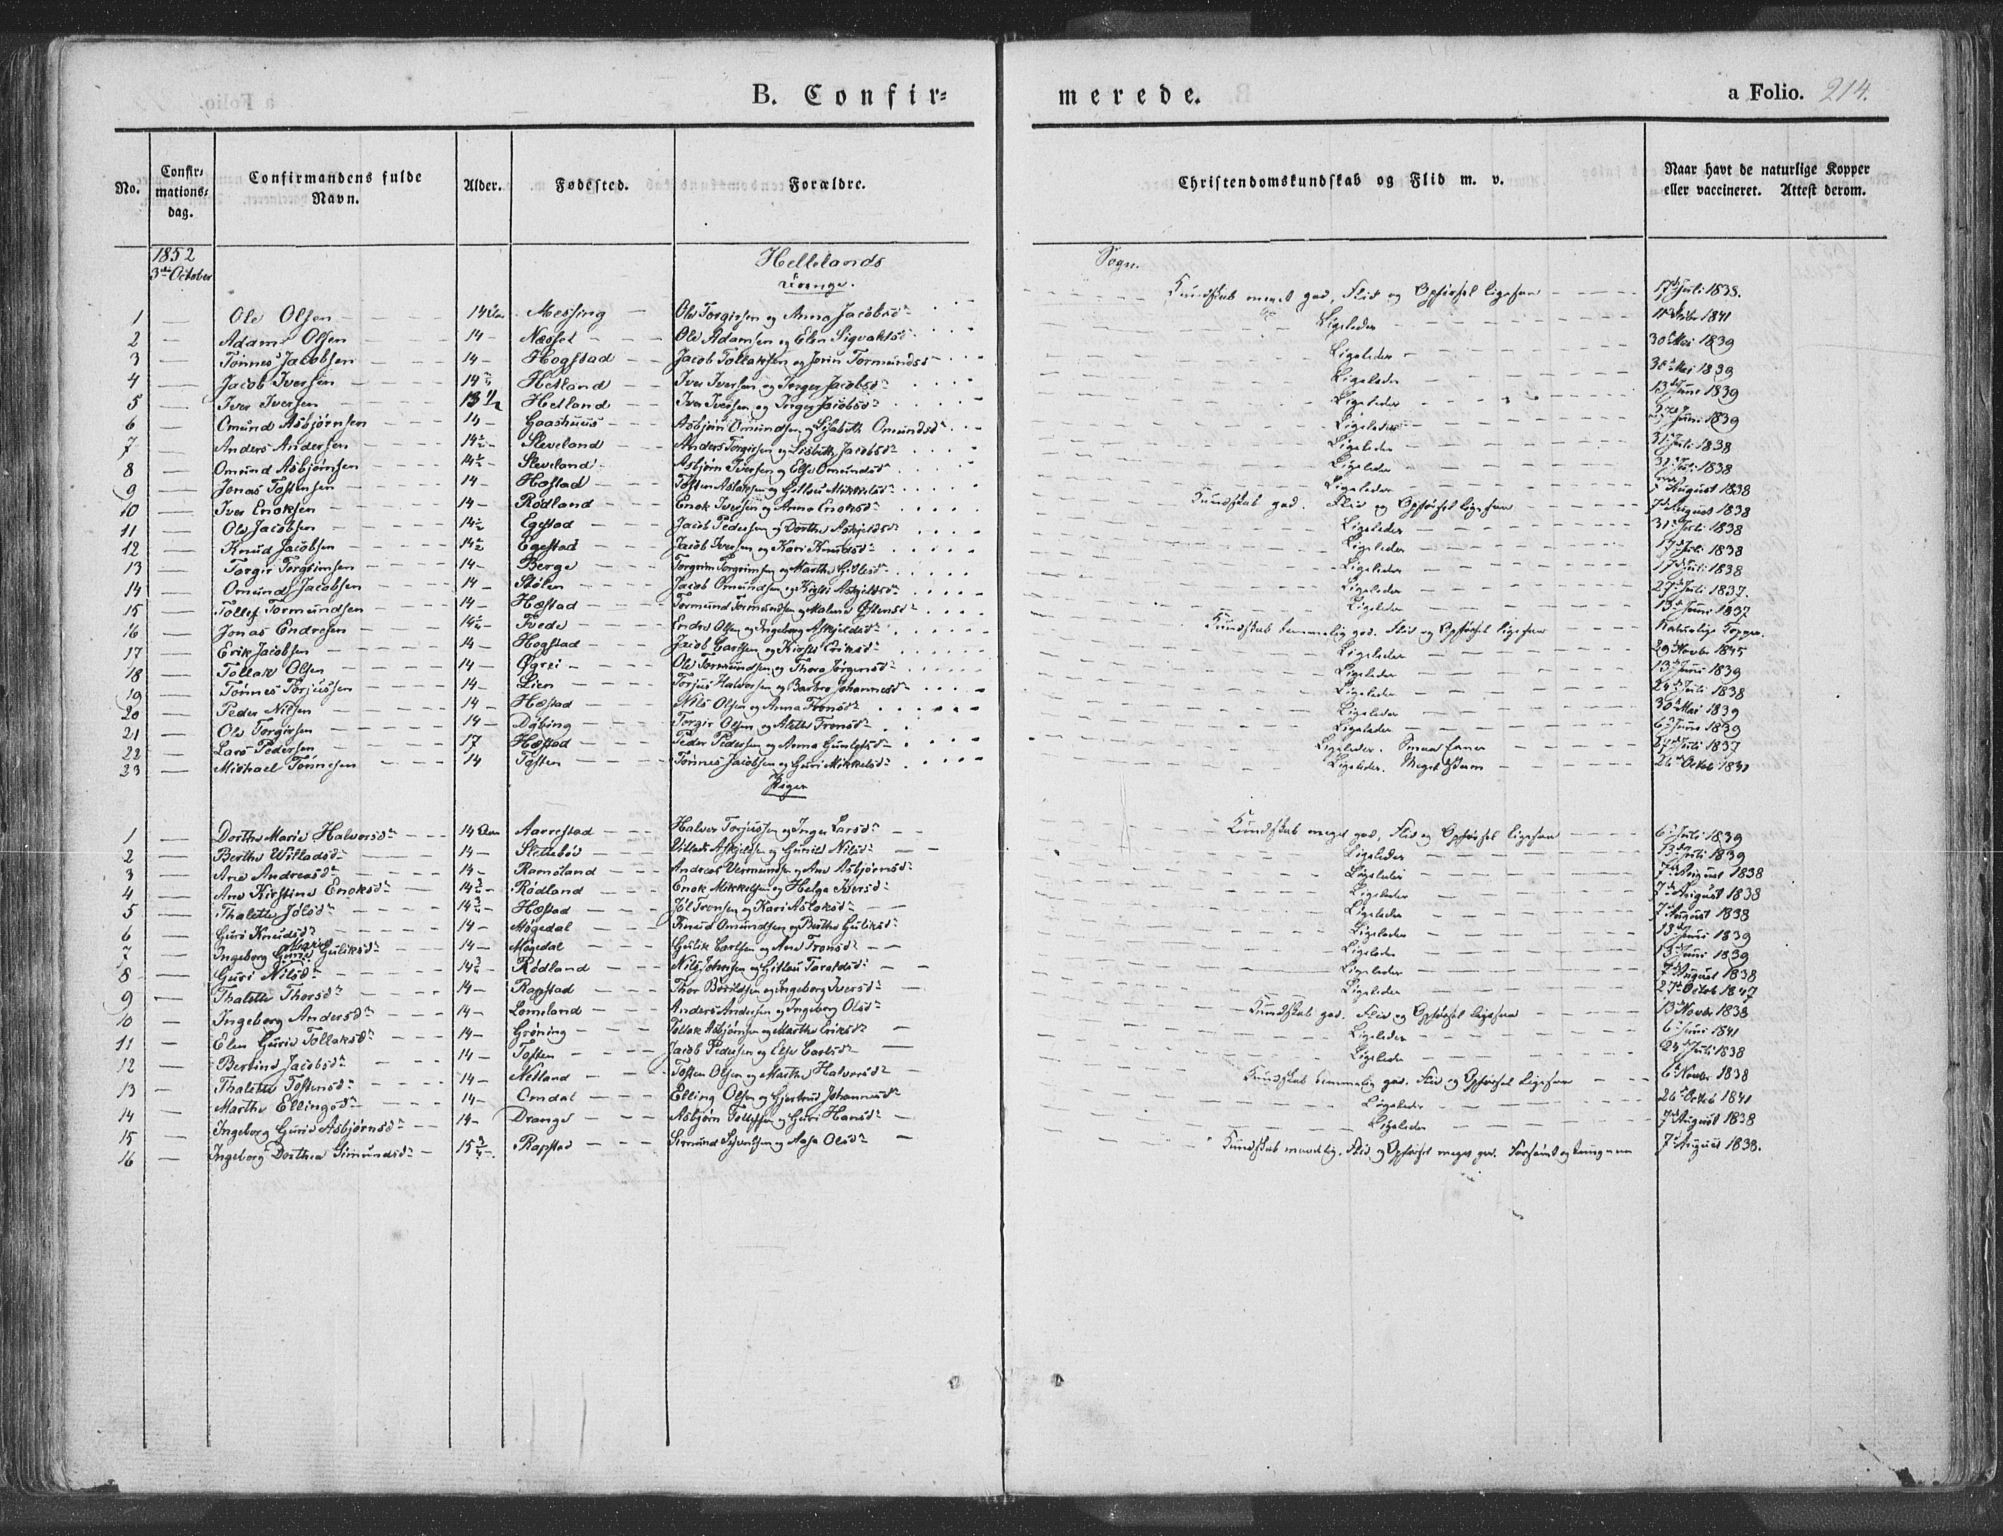 B. Confir=
merede.
a Folio. 214.
No.
Confir-
mations-
dag.
Confirmandens fulde
Navn.
Alder.
Fødested.
Forældre.
Christendomskundskab og Flid m. v.
Naar havt de naturlige Kopper
eller vaccineret. Attest derom.
1852
3de October
Hellelands
Sogn.
Drenge.
1 — Ole Olsen 14 Aar Messing Ole Torgirsen og Anna Jacobsdr Kundskab meget god, Flid og Opførsel ligesaa 17de Juli 1838.
2 — Adam Olsen 14 Næsset Ole Adamsen og Elen Sigvaldsdr Ligeleder 1841
3 — Tønnes Jacobsen 14 Hogstad Jacob Tollaksen og Jorin Tormundsdr Ligeleder 30 Mai 1839
4 — Jacob Iversen 14 Hetland Iver Iversen og Inger Jacobsdr Ligeleder 30 Mai 1839
5 — Iver Iversen 15 1/2 Hetland Iver Iversen og Inger Jacobsdr Ligeleder 13 Juni 1839
6 — Omund Asbjørnsen 14 Gaashuus Asbjørn Omundsen og Lisabeth Omundsdr Ligeleder Juni 1839
7 — Anders Andersen 14 Sleveland Anders Torgirsen og Lisbeth Jacobsdr Ligeleder 31 Juli 1838
8 — Omund Asbjørnsen 14 Sleveland Asbjørn Iversen og Else Omundsdr Ligeleder 31 Juli 1838
9 — Jonas Tostensen 14 Hæstad Tosten Aslaksen og Gitlau Mikkelsdr Ligeleder 7 August 1838
10 — Iver Enoksen 14 Rødland Enok Iversen og Anna Enoksdr Kundskab god. Flid og Opførsel ligesaa 7de August 1838
11 — Ole Jacobsen 14 Egestad Jacob Pedersen og Dorthe Askjeldsdr Ligeleder 31 Juli 1838
12 — Knud Jacobsen 14 Egestad Jacob Iversen og Kari Knudsdr Ligeleder 17 Juli 1838
13 — Torgir Torgrimsen 14 Berge Torgrim Torgrimsen og Marthe Ligeleder 17 Juli 1838
14 — Omund Jacobsen 14 Stølen Jacob Omundsen og Kirsti Askjeldsdr Ligeleder 27 Juli 1837.
15 — Tollef Tormundsen 14 Hæstad Tormund Tormundsen og Malene Østensdr Ligeleder 13 Juni 1837
16 — Jonas Endresen 14 Tvede Endre Olsen og Ingeborg Askjeldsdr Kundskab temmelig god. Flid og Opførsel ligesaa Naturlige Kopper.
17 — Erik Jacobsen 14 Hogstad Jacob Carlsen og Kirsti Eriksdr Ligeleder 29 Novbr 1845
18 — Tollak Olsen 14 Øgrei Ole Tormundsen og Thora Jørgensdr Ligeleder 13 Juni 1839
19 — Tønnes Torjussen 14 Lien Torjus Halvorsen og Barbro Johannesdr Ligeleder 24 Juli 1838
20 — Peder Nilsen 14 Hæstad Nils Olsen og Anna Tronsdr Ligeleder 30 Mai 1839
21 — Ole Torgirsen 14 Døbing Torgir Olsen og Alethe Tronsdr Ligeleder 6 Juni 1839
22 — Lars Pedersen 17 Hæstad Peder Pedersen og Anna Gunlefsdr Ligeleder. Smaa Evner 27 Juli 1837
23 — Michael Tønnesen 14 Tosten Tønnes Jacobsen og Guri Mikkelsdr Ligeleder. Meget 26 Octob 1841
Piger
1 — Dorthe Marie Halvorsdr 14 Aar Aarrestad Halvor Torjussen og Inger Larsdr Kundskab meget god, Flid og Opførsel ligesaa 6 Juli 1839
2 — Berthe Willadsdr 14 Slettebø Villads Askjeldsen og Gunild Nilsdr Ligeleder 13 Juli 1839
3 — Ane Andreasdr 14 Ramsland Andreas Vermundsen og Ane Asbjørnsdr Ligeleder 7 August 1838
4 — Ane Kirstine Enoksdr 14 3/4 Rødland Enok Mikkelsen og Helga Iversdr Ligeleder 7 August 1838
5 — Thalette Jølsdr 14 3/4 Hæstad Jøl Tronsen og Kari Aslaksdr Ligeleder 7 August 1838
6 — Guri Knudsdr 14 Møgedal Knud Omundsen og Berthe Guliksdr Ligeleder 13 Juni 1839
7 — Ingeborg Marie Guliksdr 14 Møgedal Gulik Carlsen og Ane Tronsdr Ligeleder 13 Juni 1839
8 — Guri Nilsdr 14 3/4 Rødland Nils og Gitlau Taraldsdr Ligeleder 7 August 1838
9 — Thalette Thorsdr 14 Rapstad Thor og Ingeborg Iversdr Ligeleder 27 Octob 1847
10 — Ingeborg Andersdr 14 Lomeland Anders Andersen og Ingeborg Olsdr Kundskab god. Flid og Opførsel ligesaa 13 Novbr 1838
11 — Elen Gurie Tollaksdr 14 Grøning Tollak Asbjørnsen og Marthe Eriksdr Ligeleder 6 Juni 1841
12 — Berthe Jacobsdr 14 Tosten Jacob Pedersen og Else Carlsdr Ligeleder 24 Juli 1838
13 — Thalette Tostensdr 14 Netland Tosten Olsen og Marthe Halvorsdr Kundskab temmelig god. Flid og Opførsel ligesaa 6 Novbr 1838
14 — Marthe Ellingsdr 14 Omdal Elling Olsen og Gjertrud Johannesdr Ligeleder 26 Octob 1841
15 — Ingeborg Gurie Asbjørnsdr 14 Drange Asbjørn Tollefsen og Guri Hansdr Ligeleder 7 August 1838
16 — Ingeborg Dorthea Simundsdr 15 3/4 Rapstad Simund Sivertsen og Aase Olsdr Kundskab maadelig, Flid og Opførsel meget god. Forsømt og tungnem 7 August 1838.